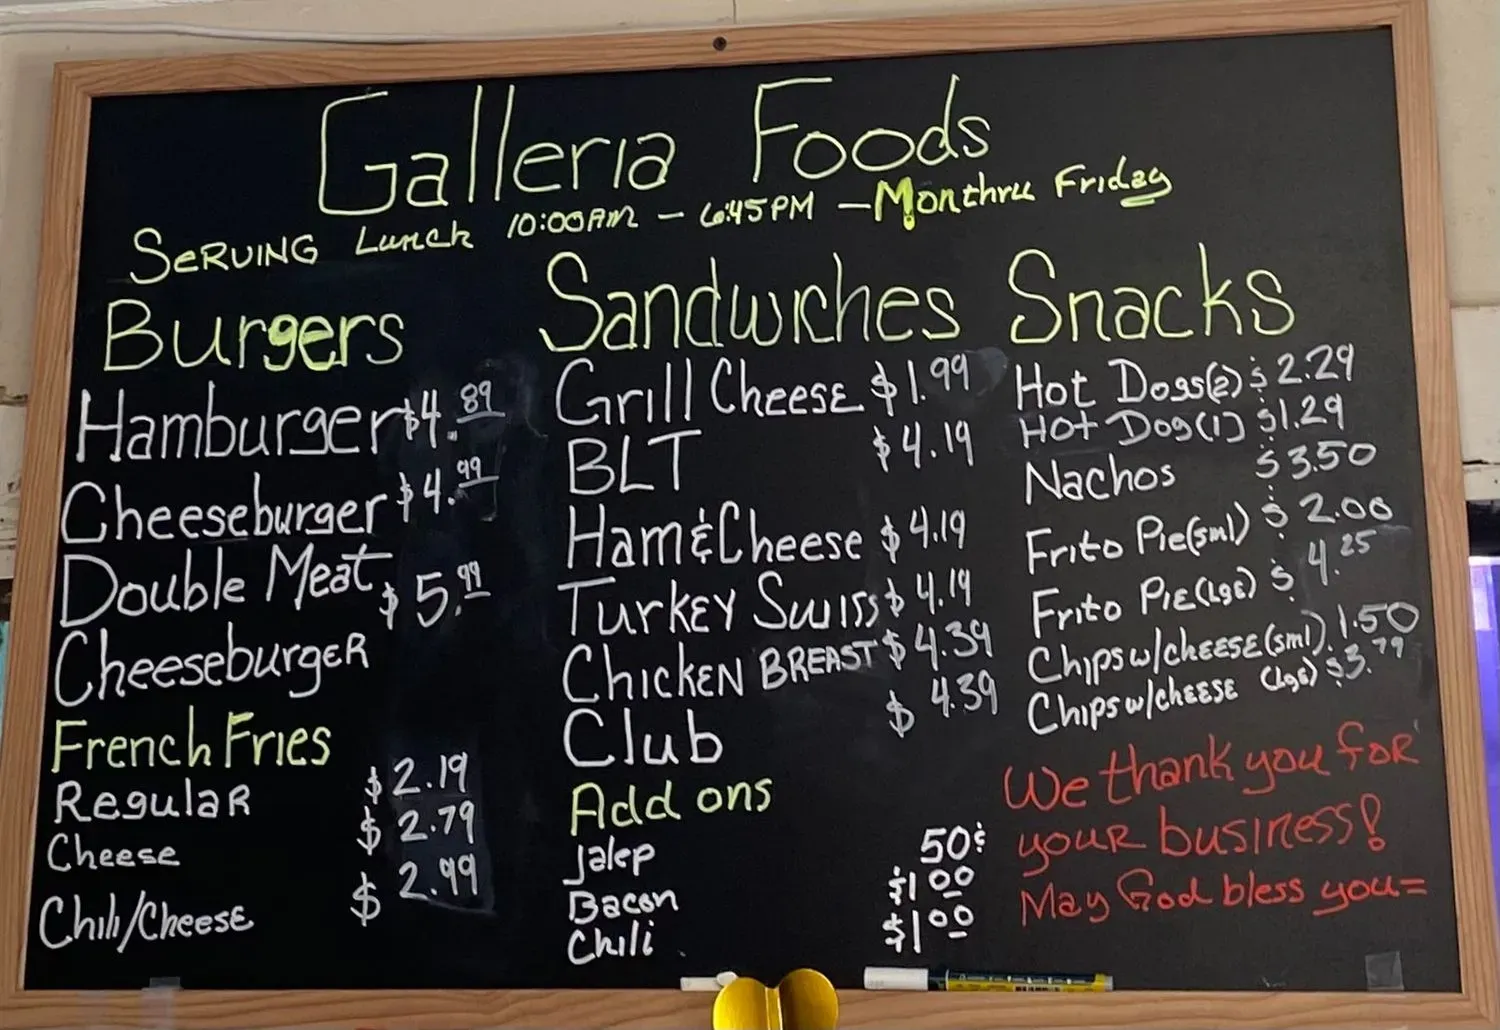 Galleria Foods
SERVING Lunch 10:00AM - 6:45PM - Monthru Friday
Burgers
Hamburger $4.89
Cheeseburger $4.99
Double Meat $5.99
Cheeseburger
French Fries
Regular $2.19
Cheese $2.79
Chili/Cheese $2.99
Sandwiches
Grill Cheese $1.99
BLT $4.19
Ham&Cheese $4.19
Turkey Swiss $4.19
Chicken BREAST $4.39
Club $4.39
Add ons
Jalep 50¢
Bacon $1.00
Chili $1.00
Snacks
Hot Dogs(2) $2.29
Hot Dog(1) $1.29
Nachos $3.50
Frito Pie(sml) $2.00
Frito Pie(Lge) $4.25
Chips w/cheese(sml).1.50
Chips w/cheese (Lge) $3.79
We thank you for
your business!
May God bless you=